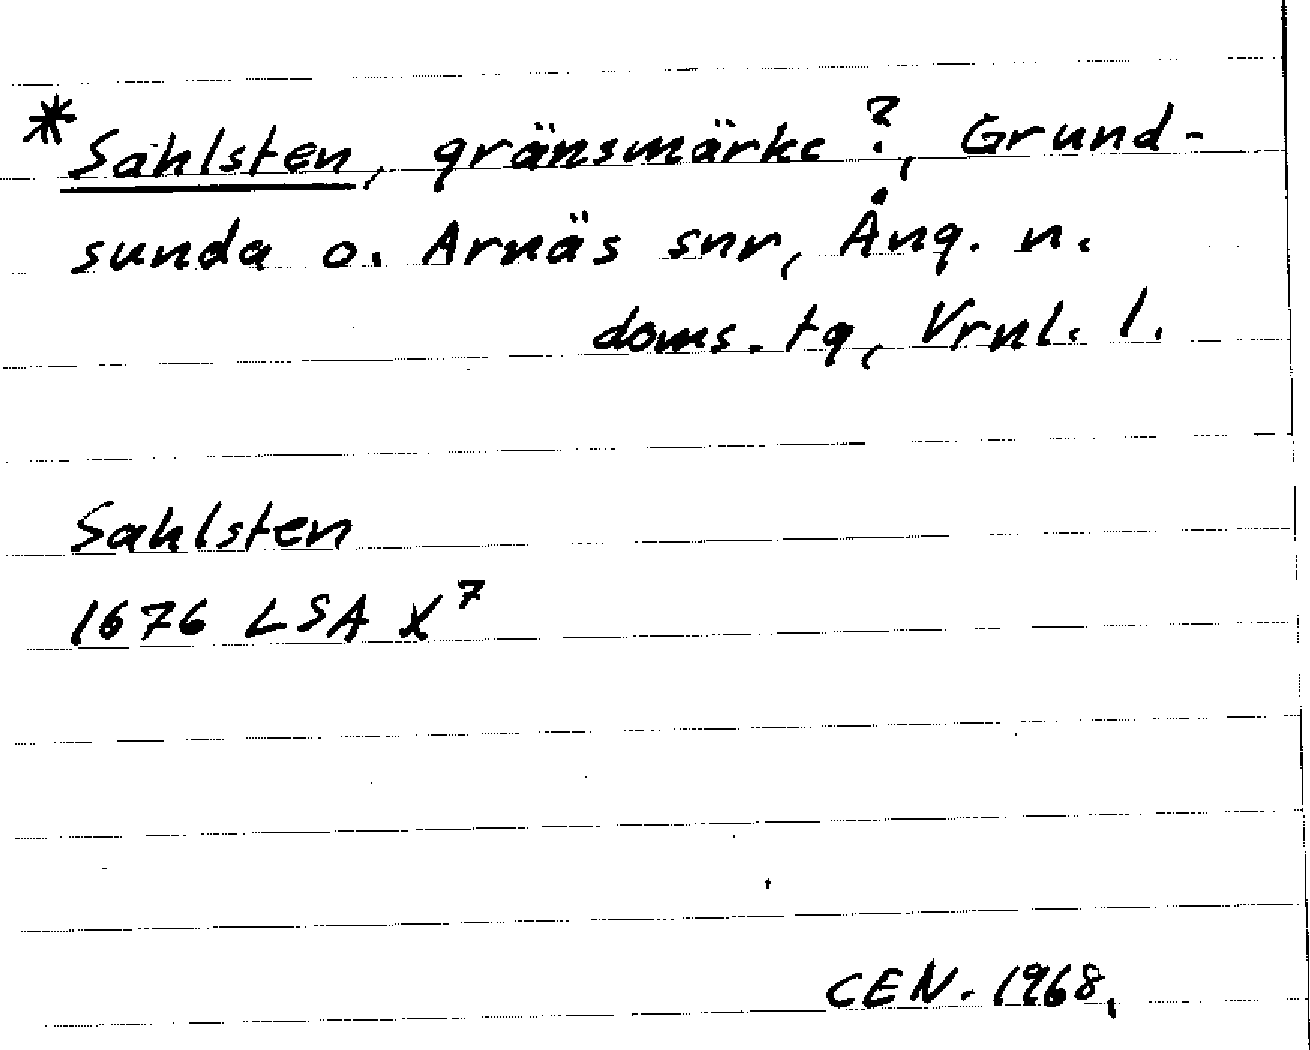 *Sahlsten, gränsmärke?, Grund-
sunda o. Arnäs snr, Ång. n.
doms. tg, Vrnl. l.
Sahlsten
1676 LSA X⁷
CEN. 1968,